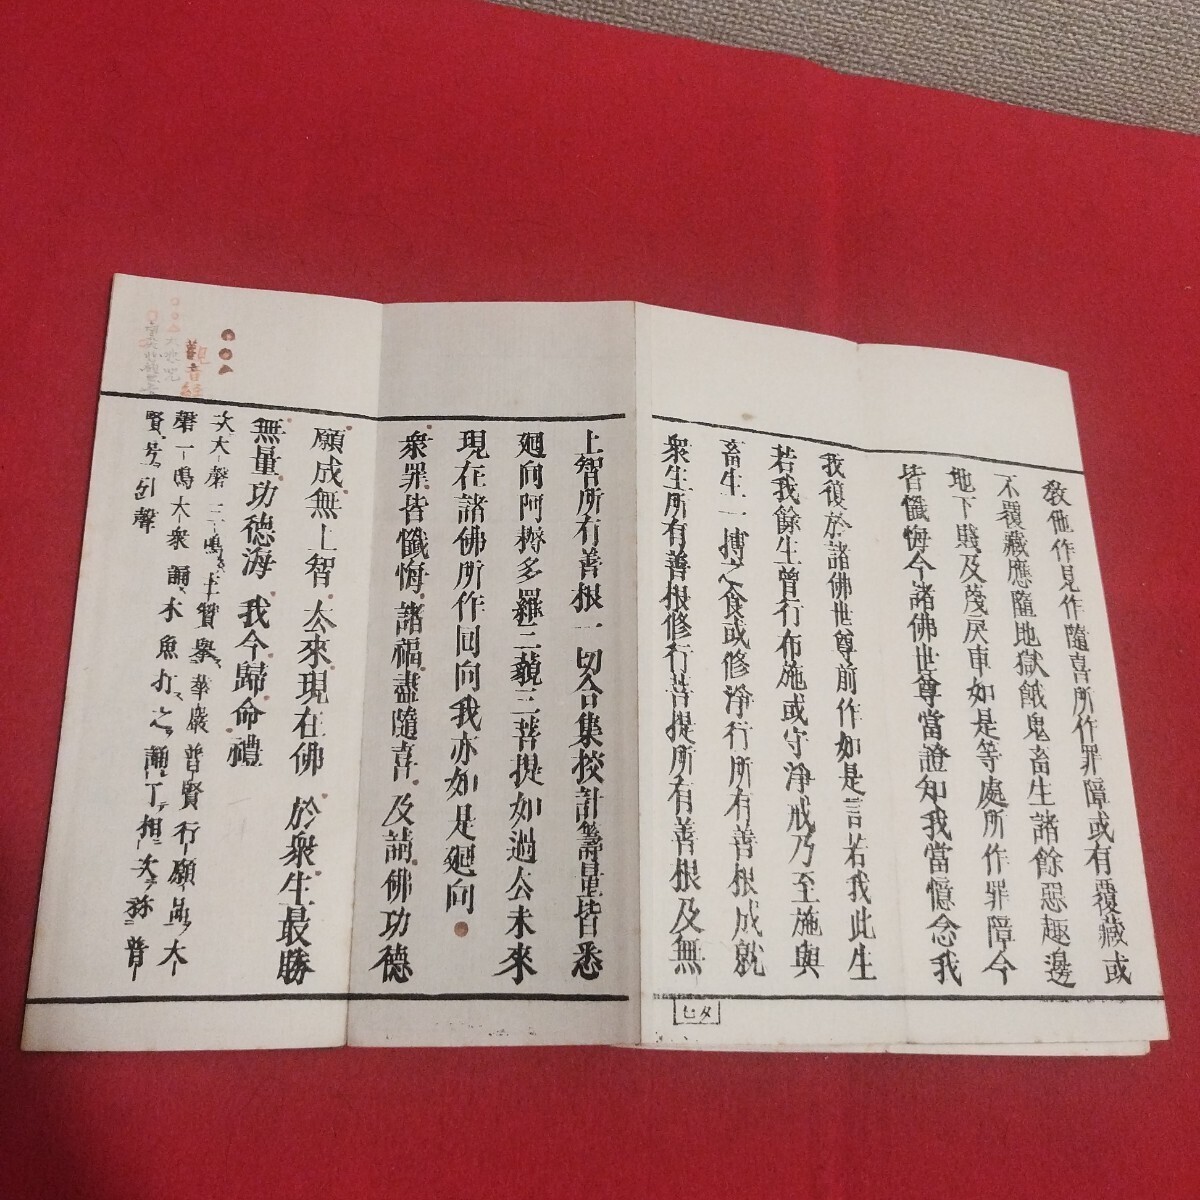 教他作見作隨喜所作罪障或有覆藏或
不覆藏應隨地獄餓鬼畜生諸餘惡趣邊
地下賤及蔑戾車如是等處所作罪障今
皆懺悔今諸佛世尊當證知我當憶念我
我復於諸佛世尊前作如是言若我此生
若我餘生曾行布施或守淨戒乃至施與
畜生一摶之食或修淨行所有善根成就
衆生所有善根修行菩提所有善根及無
上智所有善根一切合集挍計籌量皆悉
廻向阿耨多羅三藐三菩提如過去未來
現在諸佛所作回向我亦如是廻向
衆罪皆懺悔諸福盡隨喜及請佛功德
願成無上智去來現在佛於衆生最勝
無量功德海我今歸命禮
次大磬三鳴主賛擧華嚴普賢行願品大
磬一鳴大衆誦木魚打之誦了相次稱普
賢号引聲
七夕